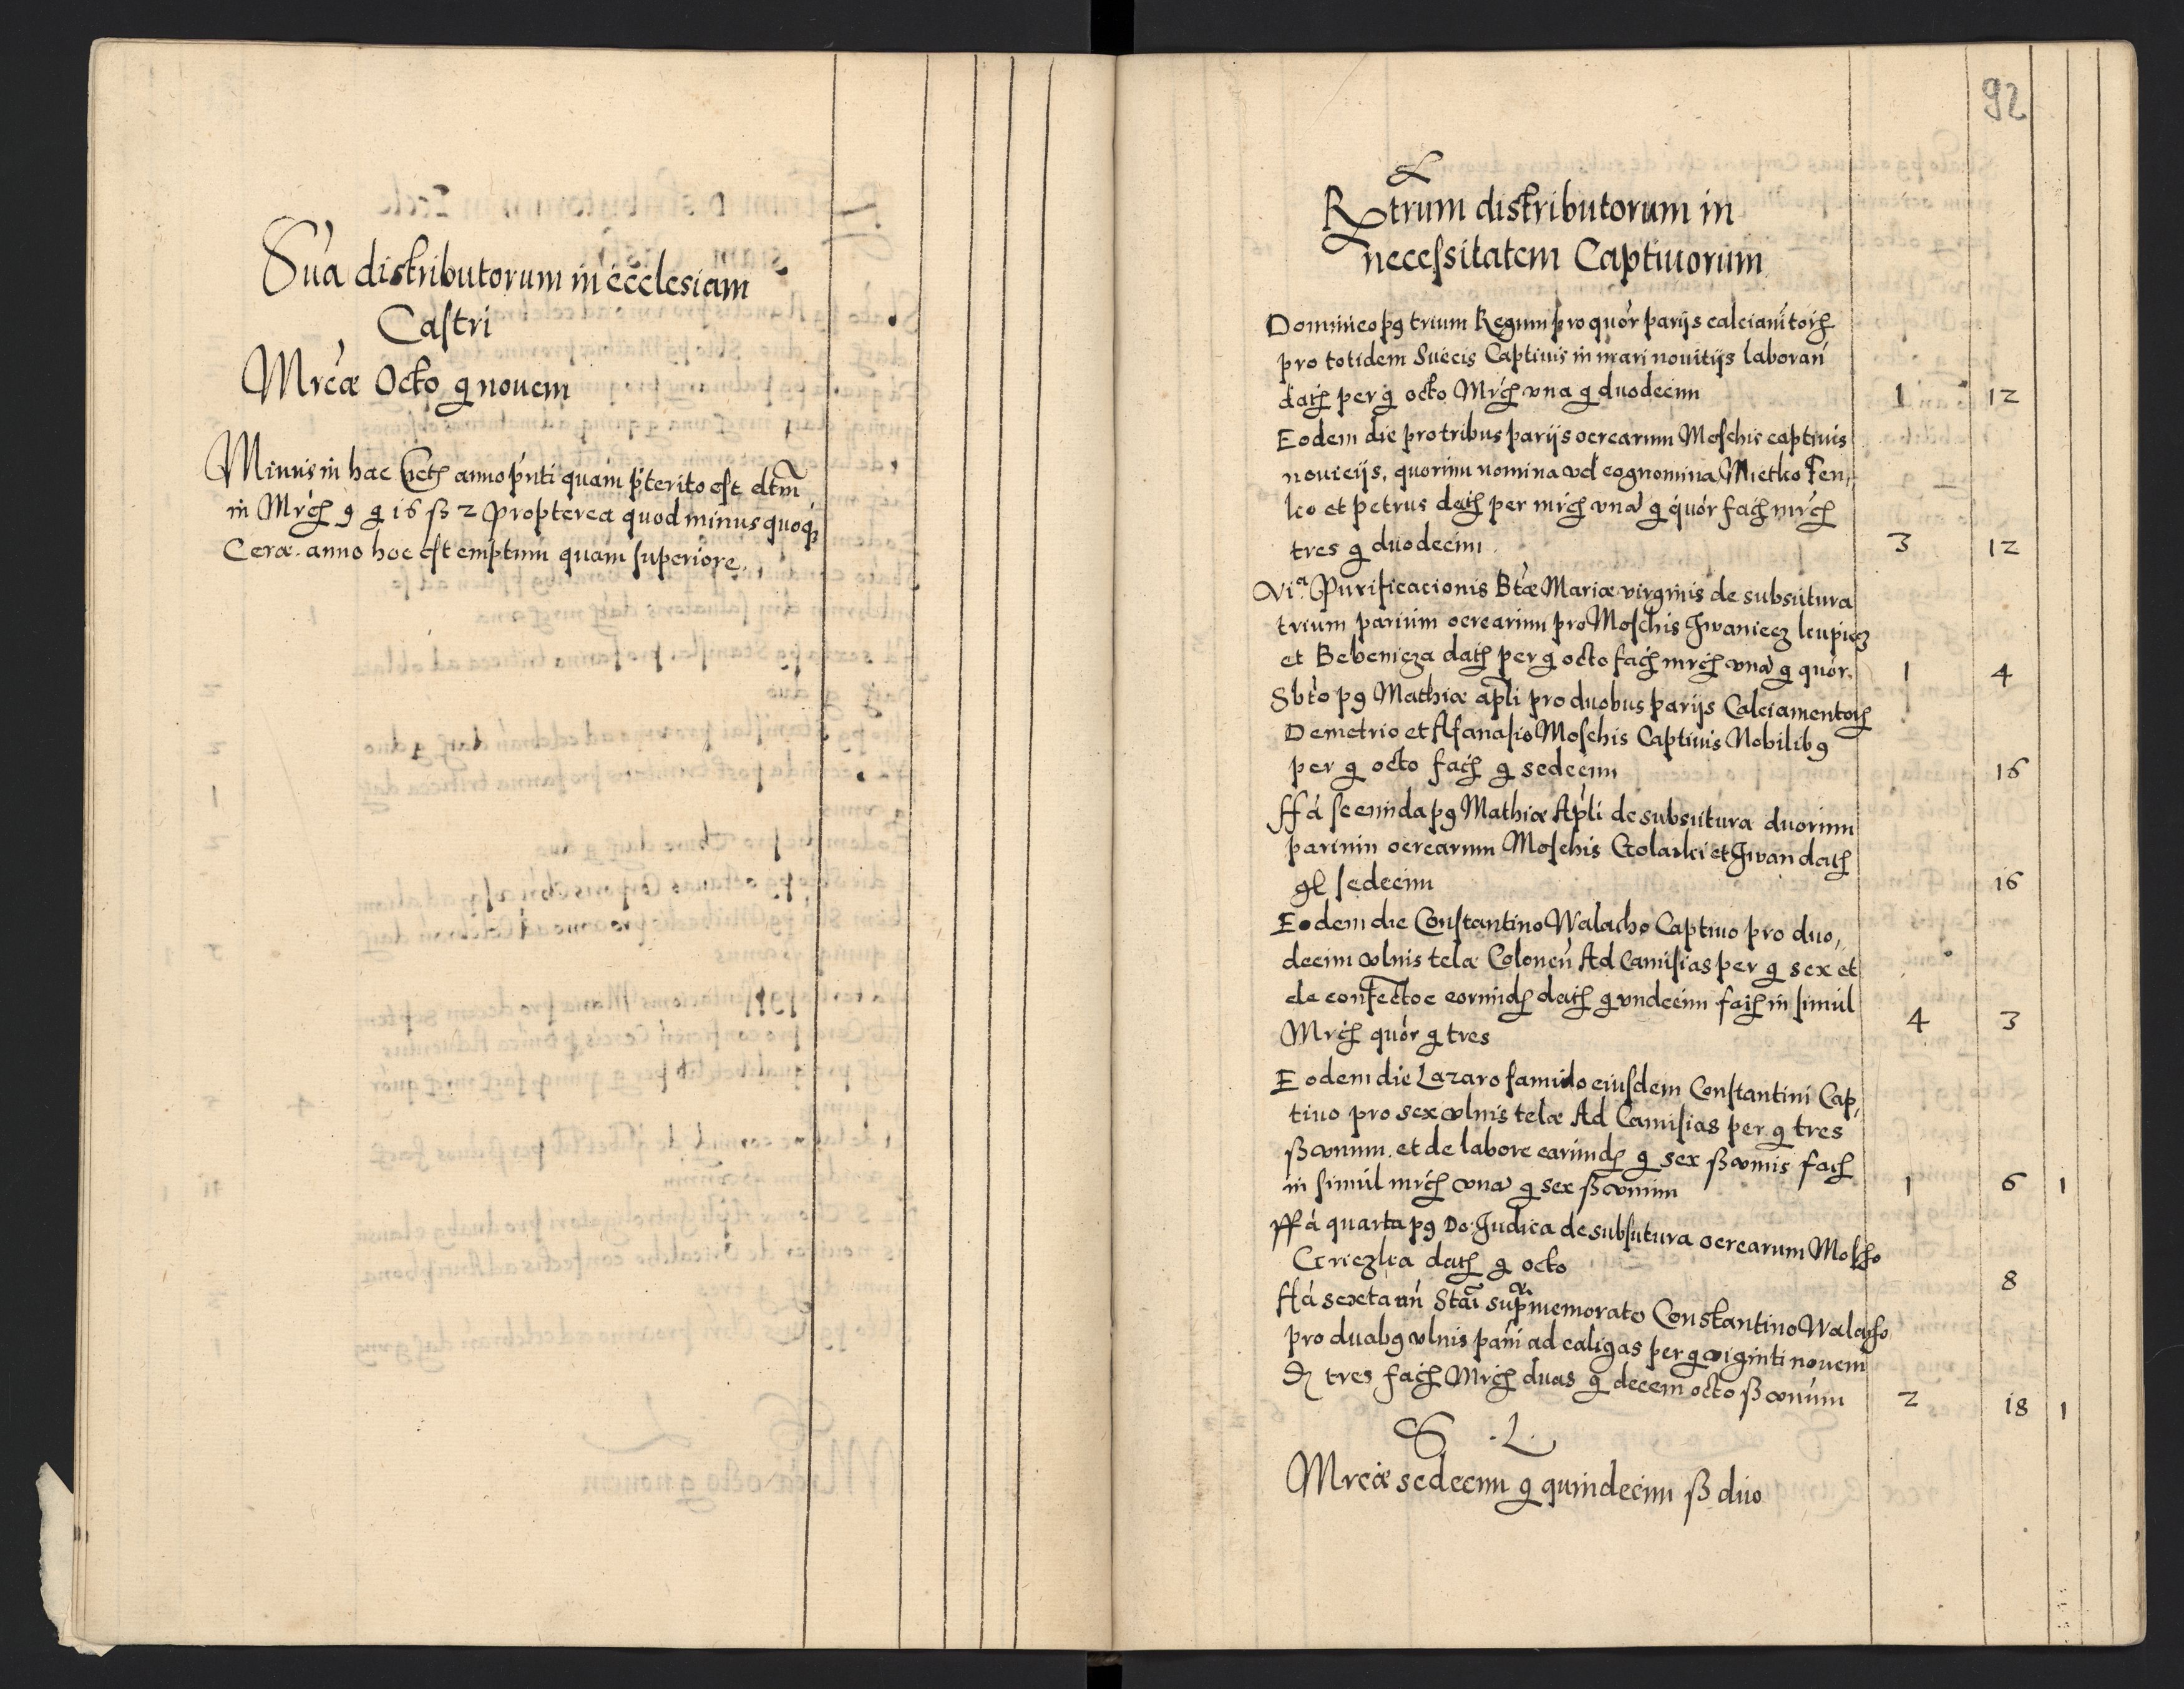 Sua distributorum in ecclesiam
Castri
Mrcæ Octo g nouem
Minus in hac Rectꝭ anno pnti quam pterito est dtm
in Mrcꝭ 9 g 16 ß 2 Propterea quod minus quoqꝫ
Ceræ anno hoc est emptum quam superiore.
92
Rtrum distributorum in
necessitatem Captiuorum
Dominico pꝰ trium Regum pro quor parijs calciamtorꝭ
pro totidem Suecis Captiuis in mari nouitijs laboran
datꝭ per g octo Mrcꝭ vna g duodecim 1 12
Eodem die pro tribus parijs ocrearum Moschis captiuis
nouicijs, quorum nomina vel cognomina Mietko Fen,
ko et petrus datꝭ per mrcꝭ vna g quor facꝭ mrcꝭ
tres g duodecim 3 12
Via Purificacionis Btæ Mariæ virginis de subsutura
trium parium ocrearum pro Moschis Jwaniecz leupiecz
et Bebenicza datꝭ per g octo facꝭ mrcꝭ vna g quor. 1 4
Sbto pꝰ Mathiæ apli pro duobus parijs Calciamentorꝭ
Demetrio et Afanasio Moschis Captiuis Nobilibꝰ
per g octo facꝭ g sedecim 16
ffa secunda pꝰ Mathiæ Apli de subsutura duorum
parium ocrearum Moschis Golarki et Jwan datꝭ
gl sedecim 16
Eodem die Constantino Walacho Captiuo pro duo,
decim vlnis telæ Colonen Ad Camisias per g sex et
de confectoe eorundꝭ datꝭ g vndecim facꝭ in simul
Mrcꝭ quor g tres 4 3
Eodem die Lazaro famulo eiusdem Constantini Cap,
tiuo pro sex vlnis telæ Ad Camisias per g tres
ß vnum. et de labore earundꝭ g sex ß vnus facꝭ
in simul mrcꝭ vna g sex ß vnum 1 6 1
ffa quarta pꝰ Do: Judica de subsutura ocrearum Moscho
Griezlia datꝭ g octo 8
ffa sexta an Stai supra memorato Constantino Walacho
pro duabꝰ vlnis pani ad caligas per g viginti nouem
đ tres facꝭ Mrcꝭ duas g decem octo ß vnum 2 18 1
S. L.
Mrcæ sedecim g quindecim ß duo